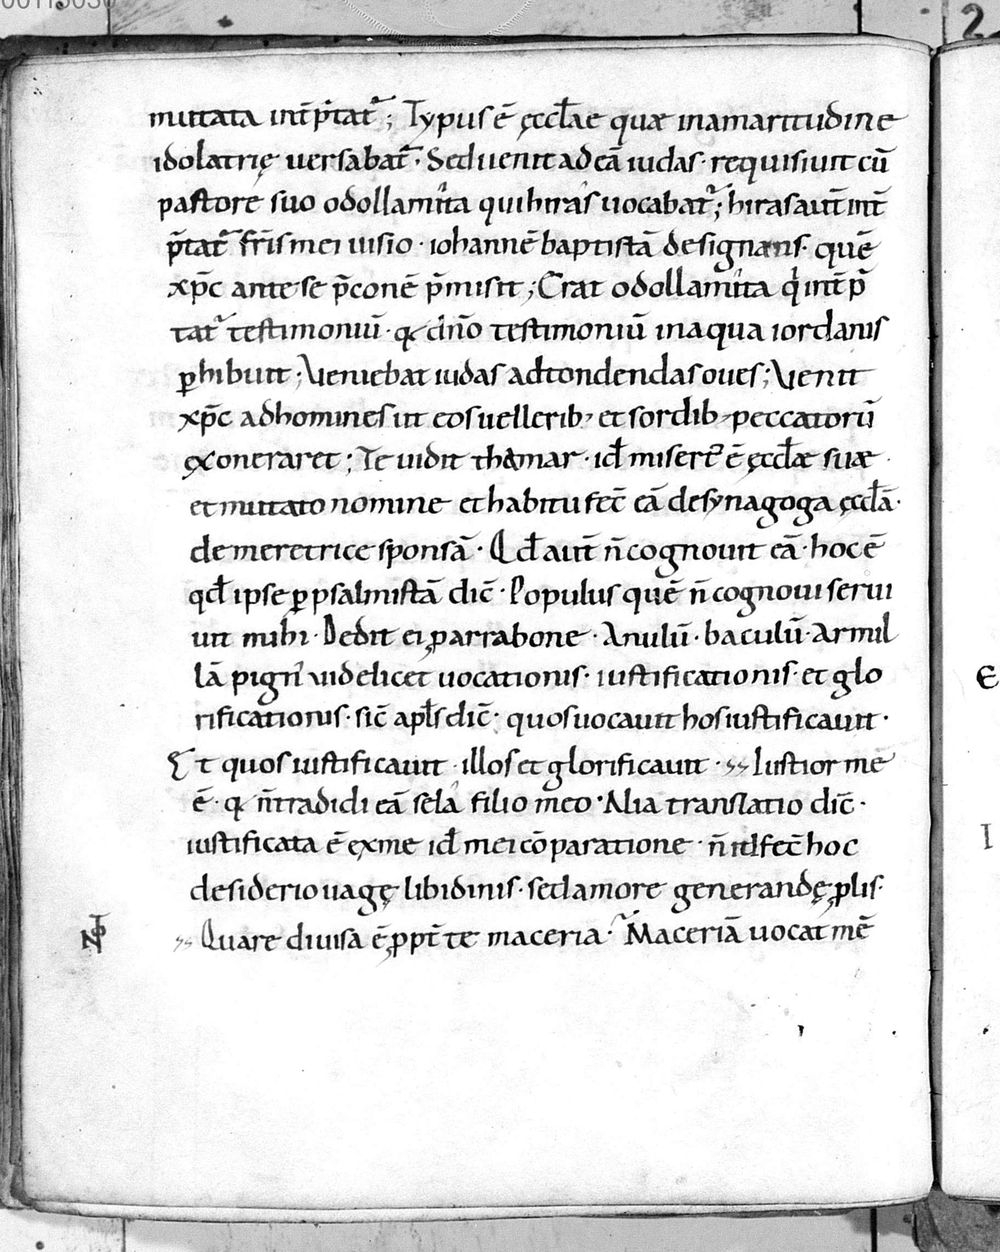 00115030
2
mutata int̄p̄tat᷑; Typus ē ęccl̄ae quæ inamaritudine
idolatrię uersabat᷑· Sed uenit ad eā iudas· requisiuit cū
pastore suo odollamita qui hiras uocabat᷑; hiras aut̄ int̄
p̄tat᷑ fr̄is mei uisio · iohannē baptistā designans· quē
xp̄c ante se p̄conē p̄misit; Erat odollamita qͥ int̄p̄
tat᷑ testimoniū· q dn̄o testimoniū inaqua iordanis
ꝑhibuit; Veniebat iudas adtondendas oues; Venit
xp̄c adhomines ut eos uellerib; et sordib; peccatorū
ęxoneraret; Te uidit thamar· id̄ misert᷑ ē ęccl̄æ suæ·
et mutato nomine et habitu fec̄ eā desynagoga ęccl̄ā·
de meretrice sponsā· Qd̄ aut̄ n̄ cognouit eā· hoc ē
qd̄ ipse ꝑ psalmistā dic̄· Populus quē n̄ cognoui serui
uit mihi· Dedit ei ꝓ arrabone· Anulū· baculū· Armil
lā pigri᷑ uidelicet uocationis· iustificationis· et glo
rificationis· sic̄ apl̄s dic̄· quos uocauit hos iustificauit·
Et quos iustificauit· illos et glorificauit· Iustior mē
ē· q n̄ tradidi eā sela filio meo· Alia translatio dic̄·
iustificata ē ęx me id̄ mei cōparatione· n̄ id fec̄ hoc
desiderio uagę libidinis· sed amore generandę ꝓlis·
Quare diuisa ē ꝓpt̄ te maceria· Maceriā uocat mē
E
I